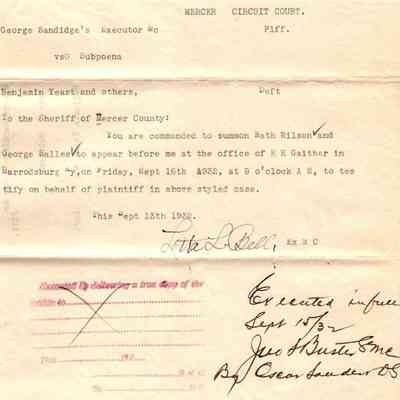 MERCER CIRCUIT COURT.
George Sandidge's Executor &c Piff.
vsO Subpoena
Benjamin Yeast and others, Deft
To the Sheriff of Mercer County:
You are commanded to summon Nath Rilson
and George Sallee to appear before me at the office of E H Gaither in
Harrodsburg Ky, on Friday, Sept 16th 1932, at 9 o'clock A M, to tes
tify on behalf of plaintiff in above styled case.
This Sept 13th 1932.
L. Bell, Ex M C
Executed By delivering a true copy of the
within to
This 192
Executed in full
Sept 15/32
Jno I Buster S M C
By Oscar Sanders D S